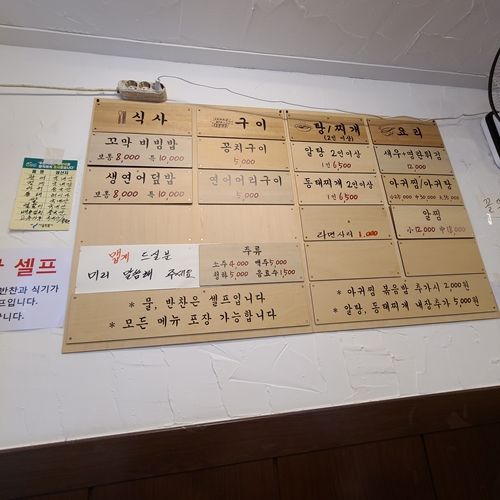 식사
꼬막 비빔밥
보통 8,000 특 10,000
생연어덮밥
보통 8,000 특 10,000
맵게 드실분
미리 말씀해 주세요
구이
꽁치구이
5,000
연어머리구이
5,000
주류
소주 4,000 맥주 5,000
청하 5,000 음료수 1,500
* 물, 반찬은 셀프입니다
* 모든 메뉴 포장 가능합니다
탕/찌개
(2인 이상)
알탕 2인이상
1인 6,500
동태찌개 2인이상
1인 6,500
라면사리 1,000
요리
새우+명란튀김
12,000
아귀찜/아귀탕
알찜
小 12,000
* 아귀찜 볶음밥 추가시 2,000원
* 알탕, 동태찌개 내장추가 5,000원
셀프
반찬과 식기가
프입니다.